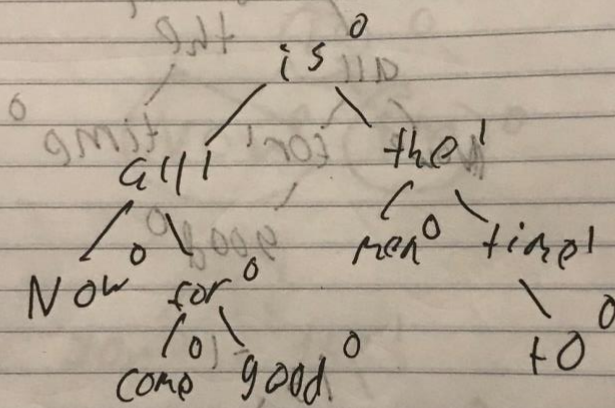 is 0
all 1 the 1
Now 0 for 0 men 0 time 1
come 0 good 0 to 0